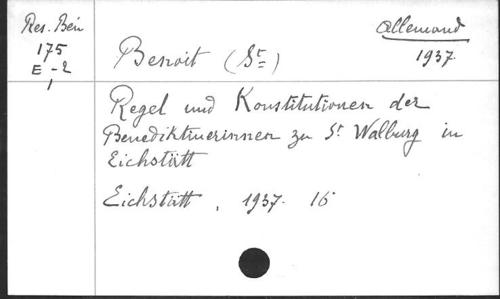 Res. Ben
175
E-2
1
Allemand
1937.
Benoit (St)
Regel und Konstitutionen der
Benediktinerinnen zu St Walburg in
Eichstätt
Eichstätt, 1937. 16